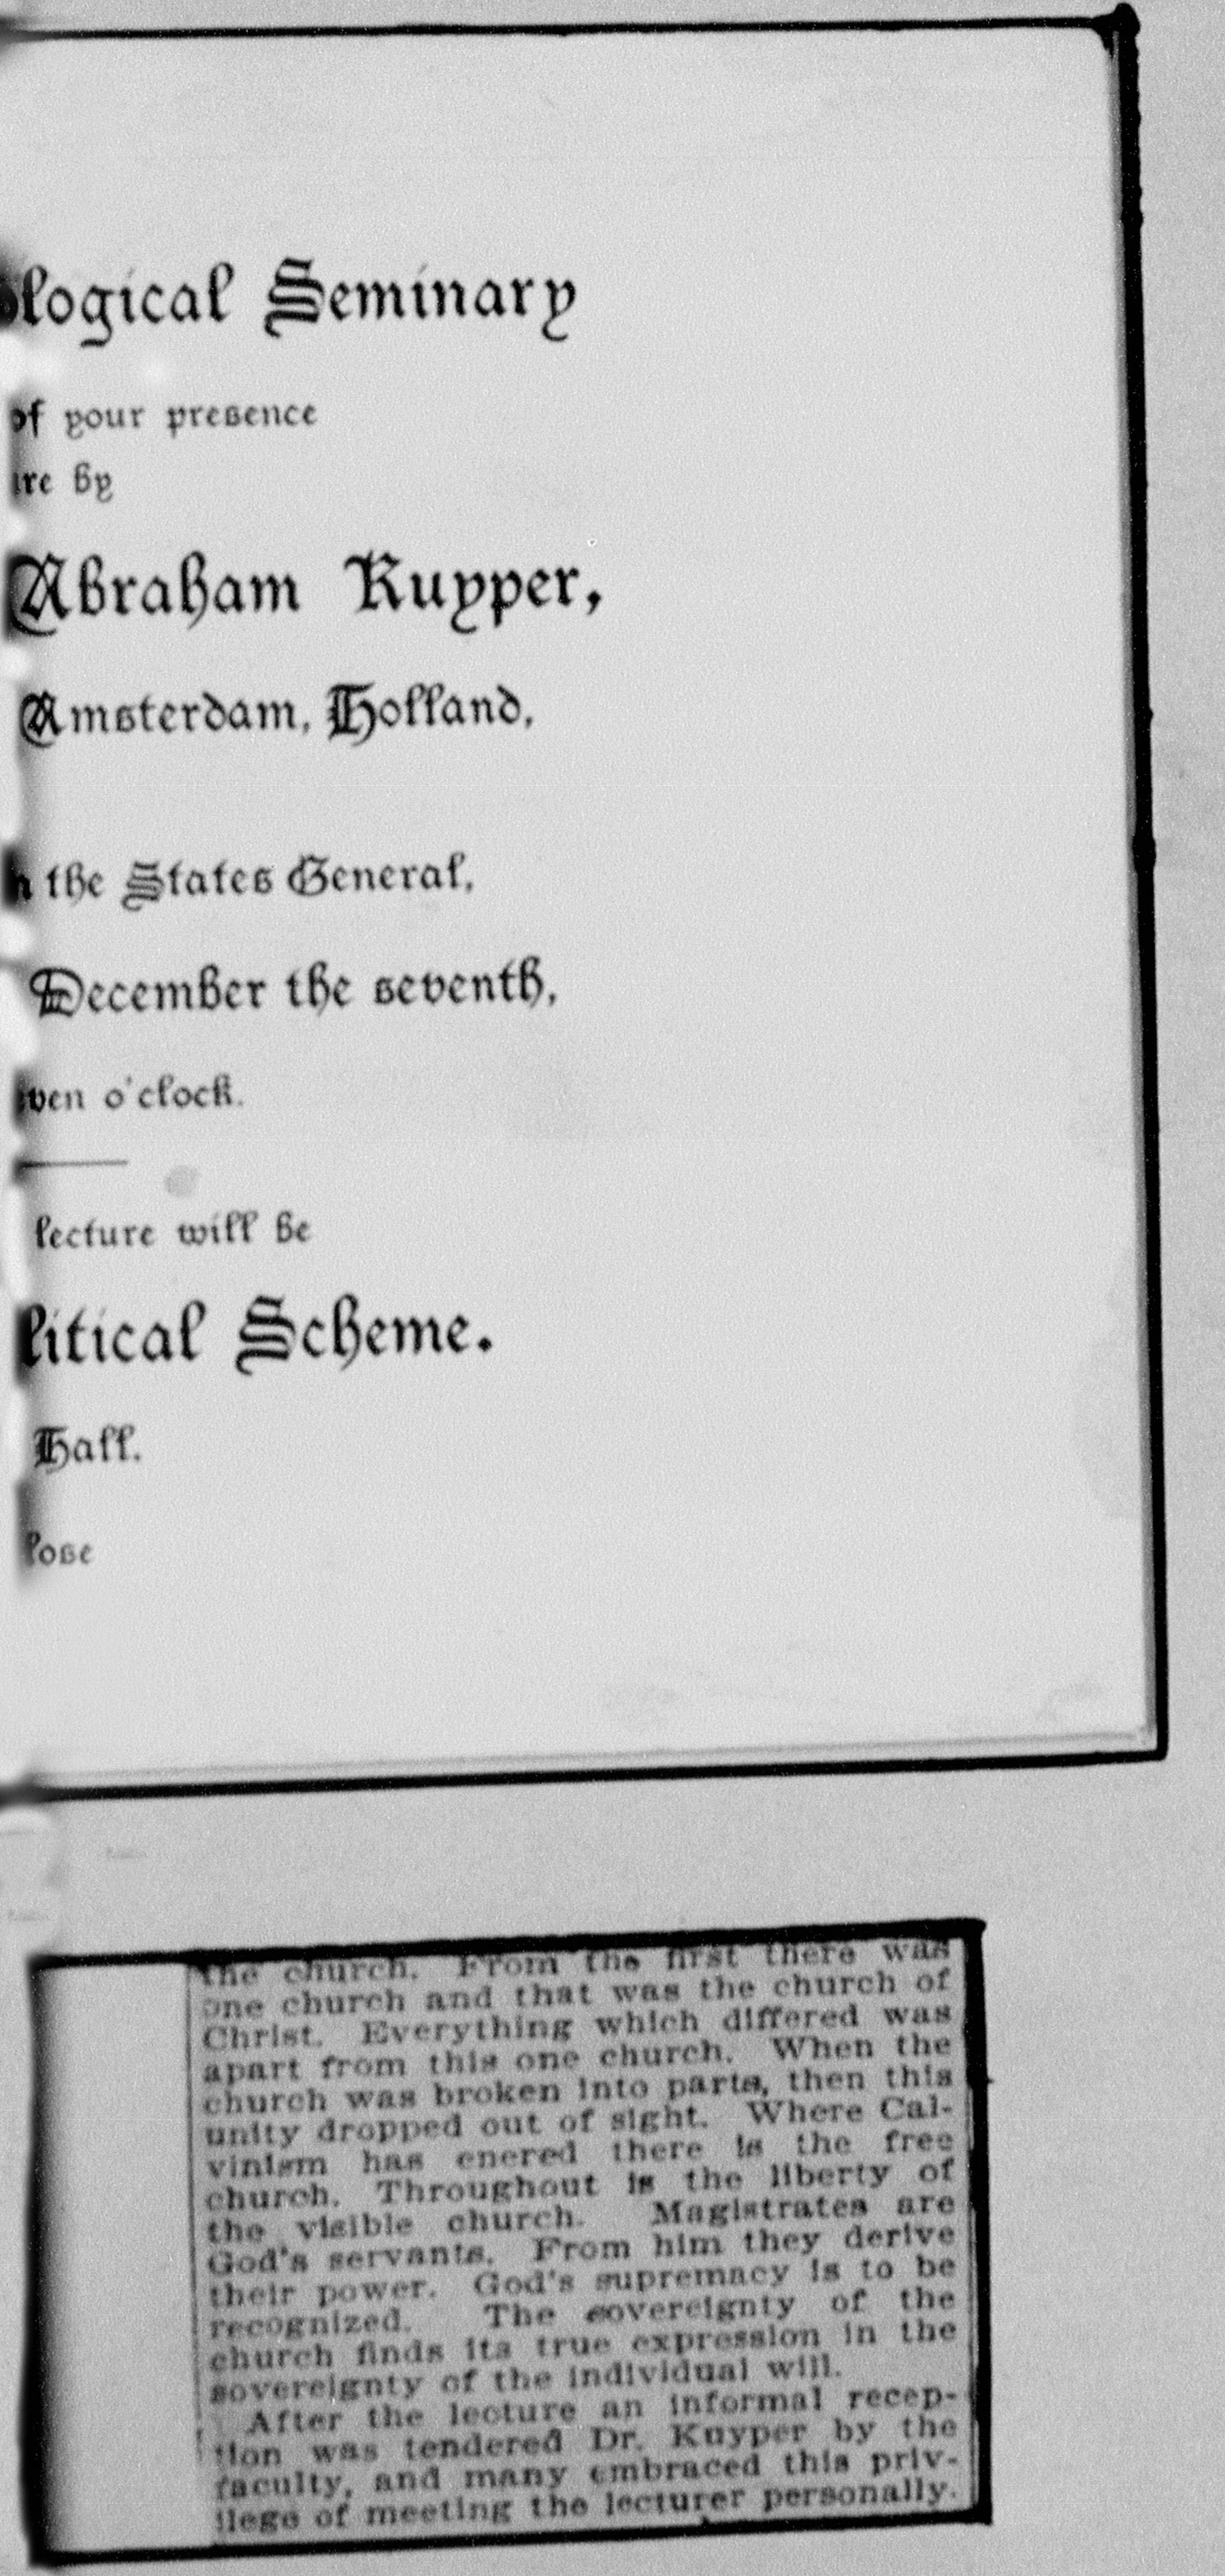 ological Seminary
of your presence
ure by
Abraham Kuyper,
Amsterdam, Holland,
h the States General,
December the seventh,
ven o'clock.
lecture will be
litical Scheme.
Hall.
lose
the church. From the first there was
one church and that was the church of
Christ. Everything which differed was
apart from this one church. When the
church was broken into parts, then this
unity dropped out of sight. Where Cal-
vinism has enered there is the free
church. Throughout is the liberty of
the visible church. Magistrates are
God's servants. From him they derive
their power. God's supremacy is to be
recognized. The sovereignty of the
church finds its true expression in the
sovereignty of the individual will.
After the lecture an informal recep-
tion was tendered Dr. Kuyper by the
faculty, and many embraced this priv-
ilege of meeting the lecturer personally.